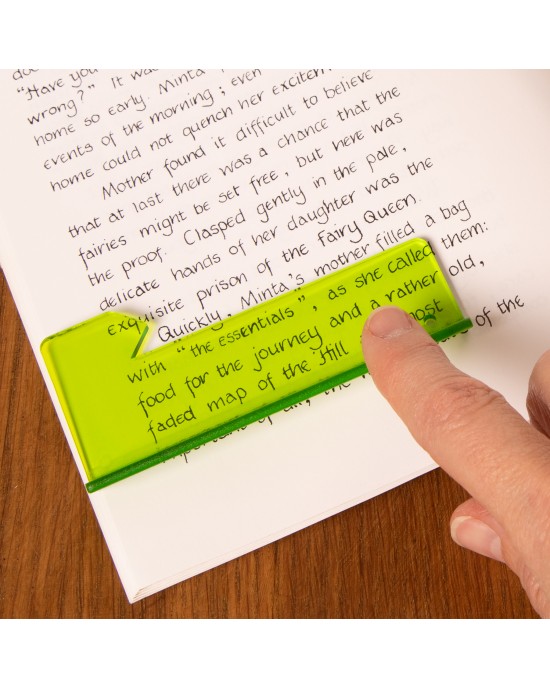 "Have you
wrong?" It was
home so early. Minta
events of the morning; even
home could not quench her excitem
Mother found it difficult to believe
that at last there was a chance that the
fairies might be set free, but here was
the proof. Clasped gently in the pale,
delicate hands of her daughter was the
exquisite prison of the Fairy Queen.
Quickly, Minta's mother filled a bag
with "the essentials", as she called them:
food for the journey and a rather old,
faded map of the Hill
of the